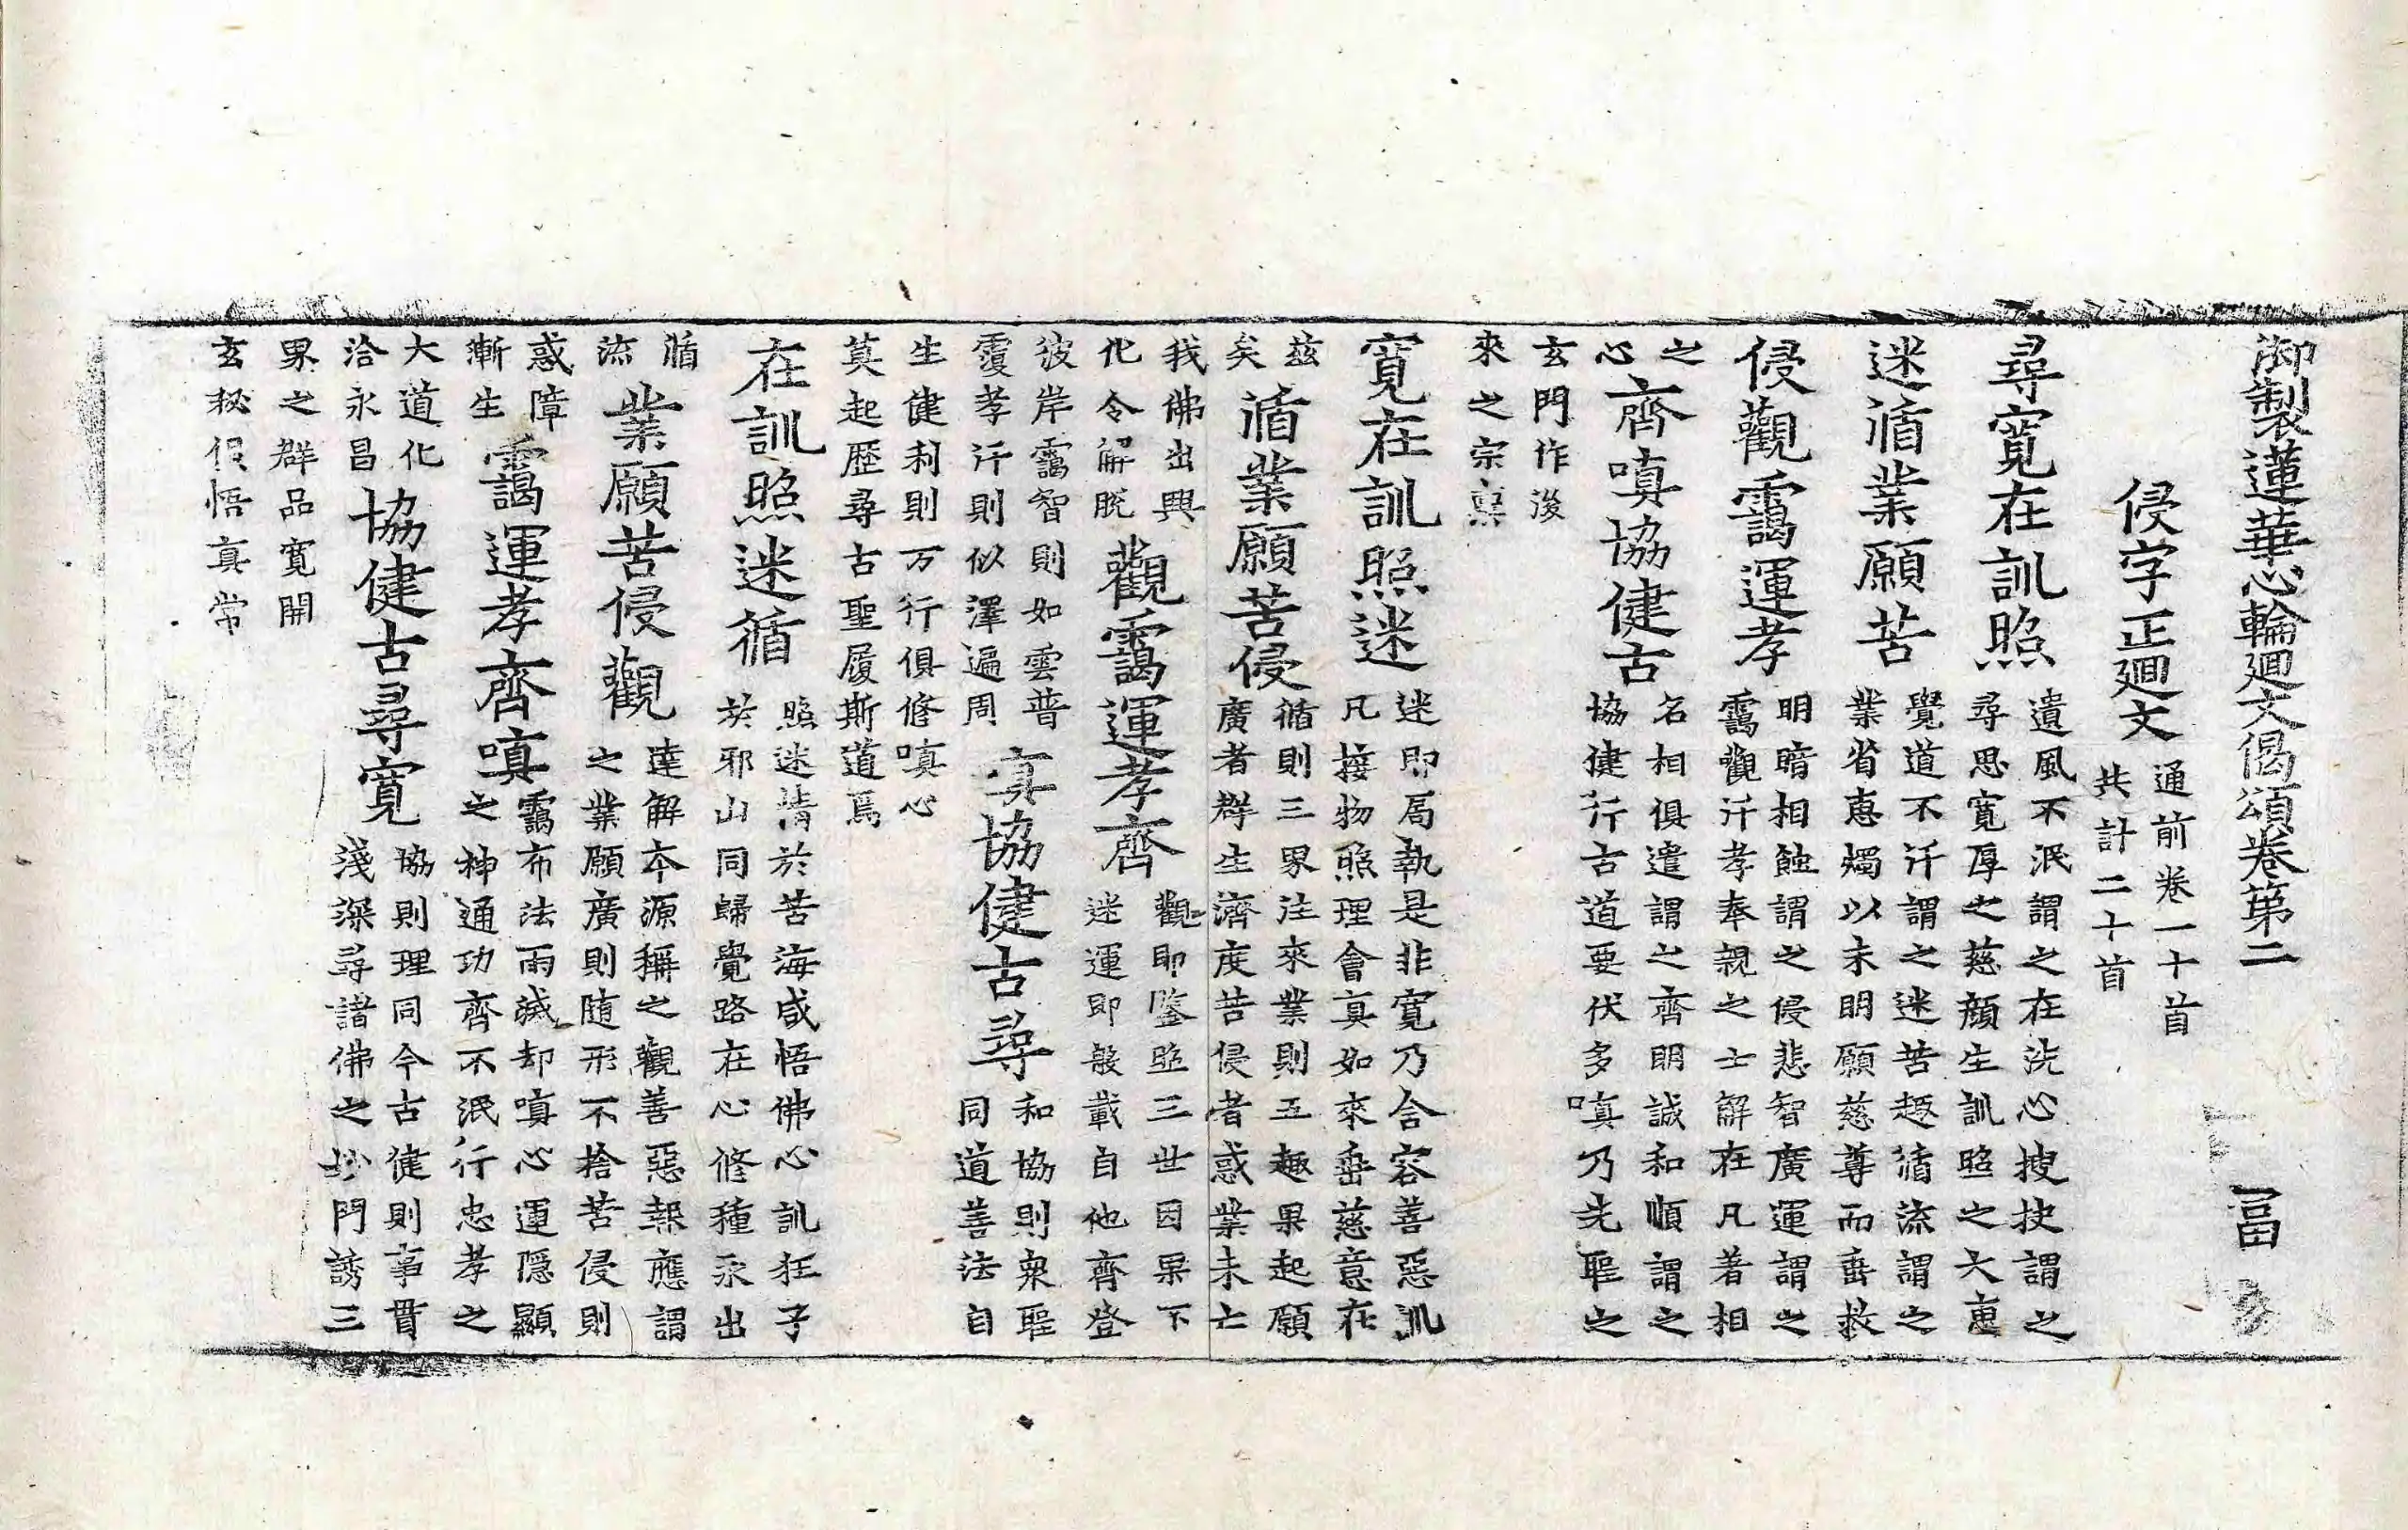 御製蓮華心輪廻文偈頌卷第二 畐
侵字正廻文
通前卷一十首
共計二十首
尋寬在訓照
遺風不泯謂之在洗心搜抉謂之
尋思寬厚之慈顏生訓照之大惠
迷循業願苦
覺道不汙謂之迷苦趣循流謂之
業省惠燭以未明願慈尊而垂救
侵觀靄運孝
明暗相蝕謂之侵悲智廣運謂之
靄觀汙孝奉親之士解在凡著相
之
心
齊嗔協健古
名相俱遣謂之齊明誠和順謂之
協健行古道要伏多嗔乃先聖之
玄門作後
來之宗稟
寬在訓照迷
迷即局執是非寬乃含容善惡訓
凡接物照理會真如來垂慈意在
茲
矣
循業願苦侵
循則三界注來業則五趣果起願
廣者群生濟度苦侵者惑業未亡
我佛出興
化令解脫
觀靄運孝齊
觀即鑒照三世因果下
迷運即般載自他齊登
彼岸靄智則如雲普
霞孝汙則似澤遍周
嗔協健古尋
和協則衆聖
同道善法自
生健利則万行俱修嗔心
莫起歷尋古聖履斯道焉
在訓照迷循
照迷情於苦海咸悟佛心訓狂子
於邪山同歸覺路在心修種永出
循
流
業願苦侵觀
達解本源稱之觀善惡報應謂
之業願廣則随形不捨苦侵則
惑障
漸生
靄運孝齊嗔
靄布法雨滅却嗔心運隱顯
之神通功齊不泯行忠孝之
大道化
洽永昌
協健古尋寬
協則理同今古健則事貫
淺深尋諸佛之妙門誘三
界之群品寬開
玄秘俱悟真常